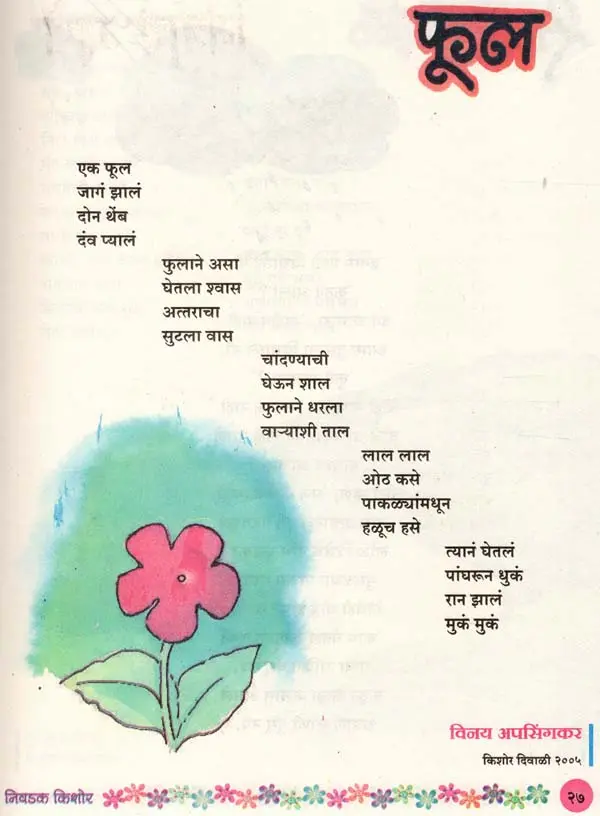 फूल
एक फूल
जागं झालं
दोन थेंब
दंव प्यालं
फुलाने असा
घेतला श्वास
अत्तराचा
सुटला वास
चांदण्याची
घेऊन शाल
फुलाने धरला
वाऱ्याशी ताल
लाल लाल
ओठ कसे
पाकळ्यांमधून
हळूच हसे
त्यानं घेतलं
पांघरून धुकं
रान झालं
मुकं मुकं
विनय अपसिंगकर
किशोर दिवाळी २००५
निवडक किशोर २७